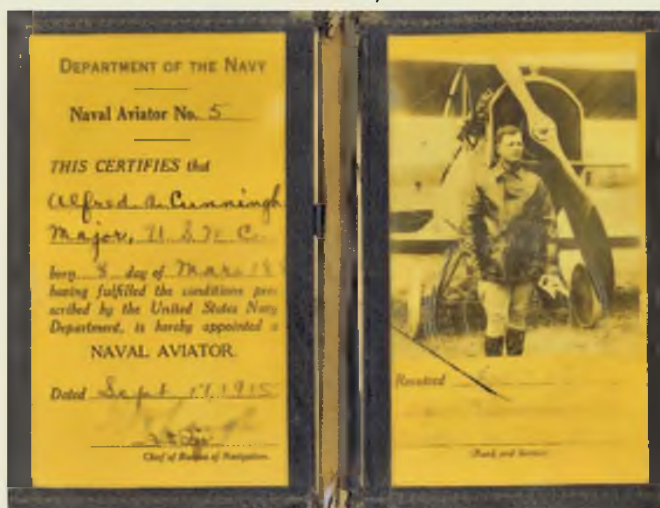 DEPARTMENT OF THE NAVY
Naval Aviator No. 5
THIS CERTIFIES that
Alfred A. Cunningh
Major, U.S.M.C.
born 8 day of Mar. 18
having fulfilled the conditions pre
scribed by the United States Navy
Department, is hereby appointed a
NAVAL AVIATOR.
Dated Sept 17, 1915
Chief of Bureau of Navigation.
Received
(Rank and Service)